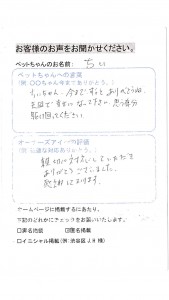 お客様のお声をお聞かせください。
ペットちゃんのお名前: ちい
ペットちゃんへの言葉
(例:〇〇ちゃん今までありがとう。)
ちいちゃん、今まで、ずっとありがとうね。
天国で幸せになって下さい。思う存分
駆け回ってください。
オーナーズアイの評価
(例:迅速な対応ありがとう。)
親切に
ありがとうございました。
ホームページに掲載するにあたり、
下記のどれかにチェックをお願いいたします。
□実名掲載 □匿名掲載
□イニシャル掲載(例:渋谷区J.H様)